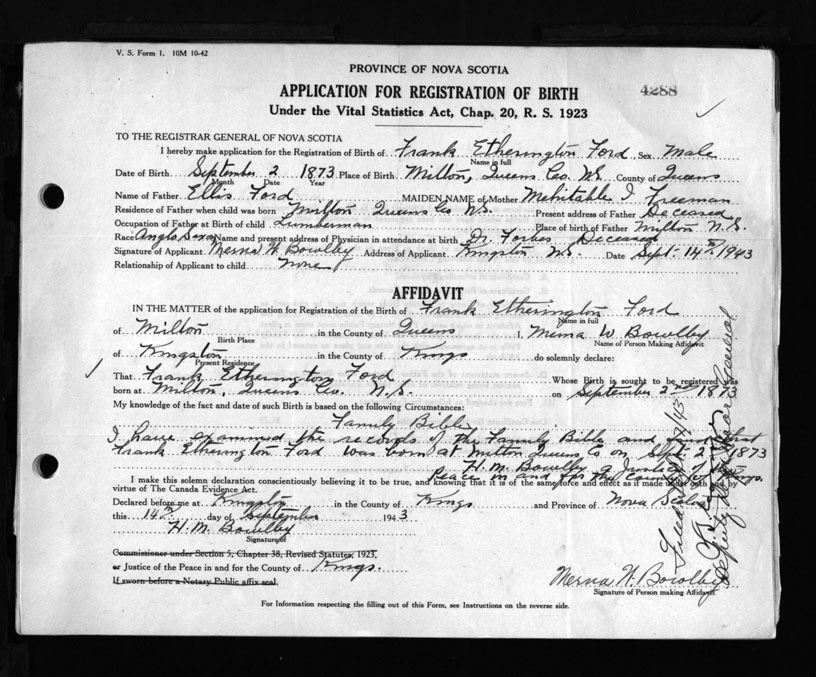 V. S. Form 1. 10M 10-42
PROVINCE OF NOVA SCOTIA
APPLICATION FOR REGISTRATION OF BIRTH
4288
Under the Vital Statistics Act, Chap. 20, R. S. 1923
TO THE REGISTRAR GENERAL OF NOVA SCOTIA
I hereby make application for the Registration of Birth of Frank Etherington Ford Sex Male
Name in full
Date of Birth September 2 1873 Place of Birth Milton, Queens Co. N.S. County of Queens
Month Date Year
Name of Father Ellis Ford MAIDEN NAME of Mother Mehitable I Freeman
Residence of Father when child was born Milton Queens Co N.S. Present address of Father Deceased
Occupation of Father at Birth of child Lumberman Place of birth of Father Milton N.S.
Race Anglo Saxon Name and present address of Physician in attendance at birth Dr. Forbes Deceased
Signature of Applicant Merna W. Bowlby Address of Applicant Kingston N.S. Date Sept. 14th 1943
Relationship of Applicant to child None
AFFIDAVIT
IN THE MATTER of the application for Registration of the Birth of Frank Etherington Ford
Name in full
of Milton in the County of Queens I, Merna W Bowlby
Birth Place Name of Person Making Affidavit
of Kingston in the County of Kings do solemnly declare:
Present Residence
That Frank Etherington Ford Whose Birth is sought to be registered was
born at Milton, Queens Co. N.S. on September 2nd 1873
My knowledge of the fact and date of such Birth is based on the following Circumstances:
Family Bible
I have examined the records of the Family Bible and that
Frank Etherington Ford was born at Milton Queens Co on Sept. 2 1873
H. M. Bowlby a Justice of the
Peace in and for the County of Kings.
I make this solemn declaration conscientiously believing it to be true, and knowing that it is of the same force and effect as if made under oath and by
virtue of The Canada Evidence Act.
Declared before me at Kingston in the County of Kings and Province of Nova Scotia
this 14th day of September 1943
H. M. Bowlby
Signature of
Commissioner under Section 5, Chapter 38, Revised Statutes, 1923,
or Justice of the Peace in and for the County of Kings.
If sworn before a Notary Public affix seal.
Merna W. Bowlby
Signature of Person making Affidavit
For Information respecting the filling out of this Form, see Instructions on the reverse side.
Deputy Registrar General